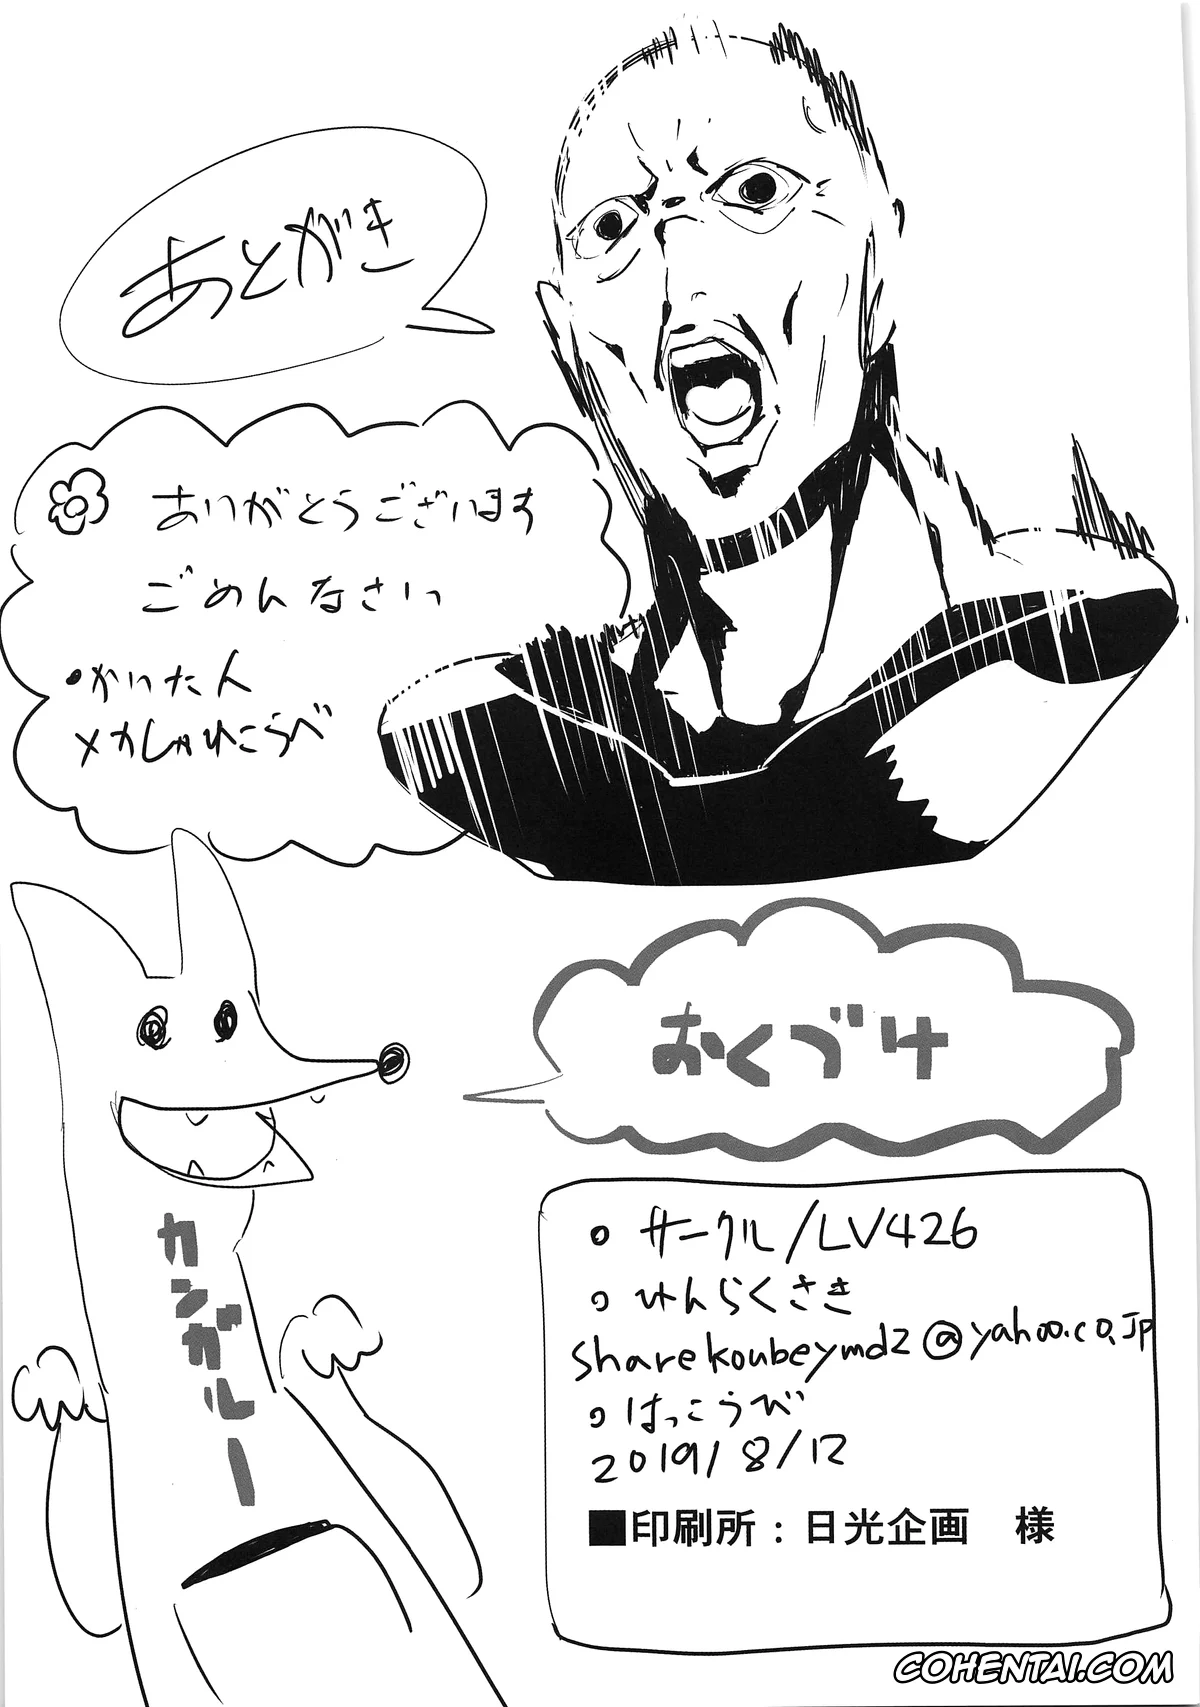 あとがき
ありがとうございます
ごめんなさいっ
・かいたん
メカしゃれこうべ
おくづけ
カンガルー
サークル/LV426
れんらくさき
sharekoubeymdz@yahoo.co.jp
はっこうび
2019/8/12
■印刷所：日光企画 様
COHENTAI.COM